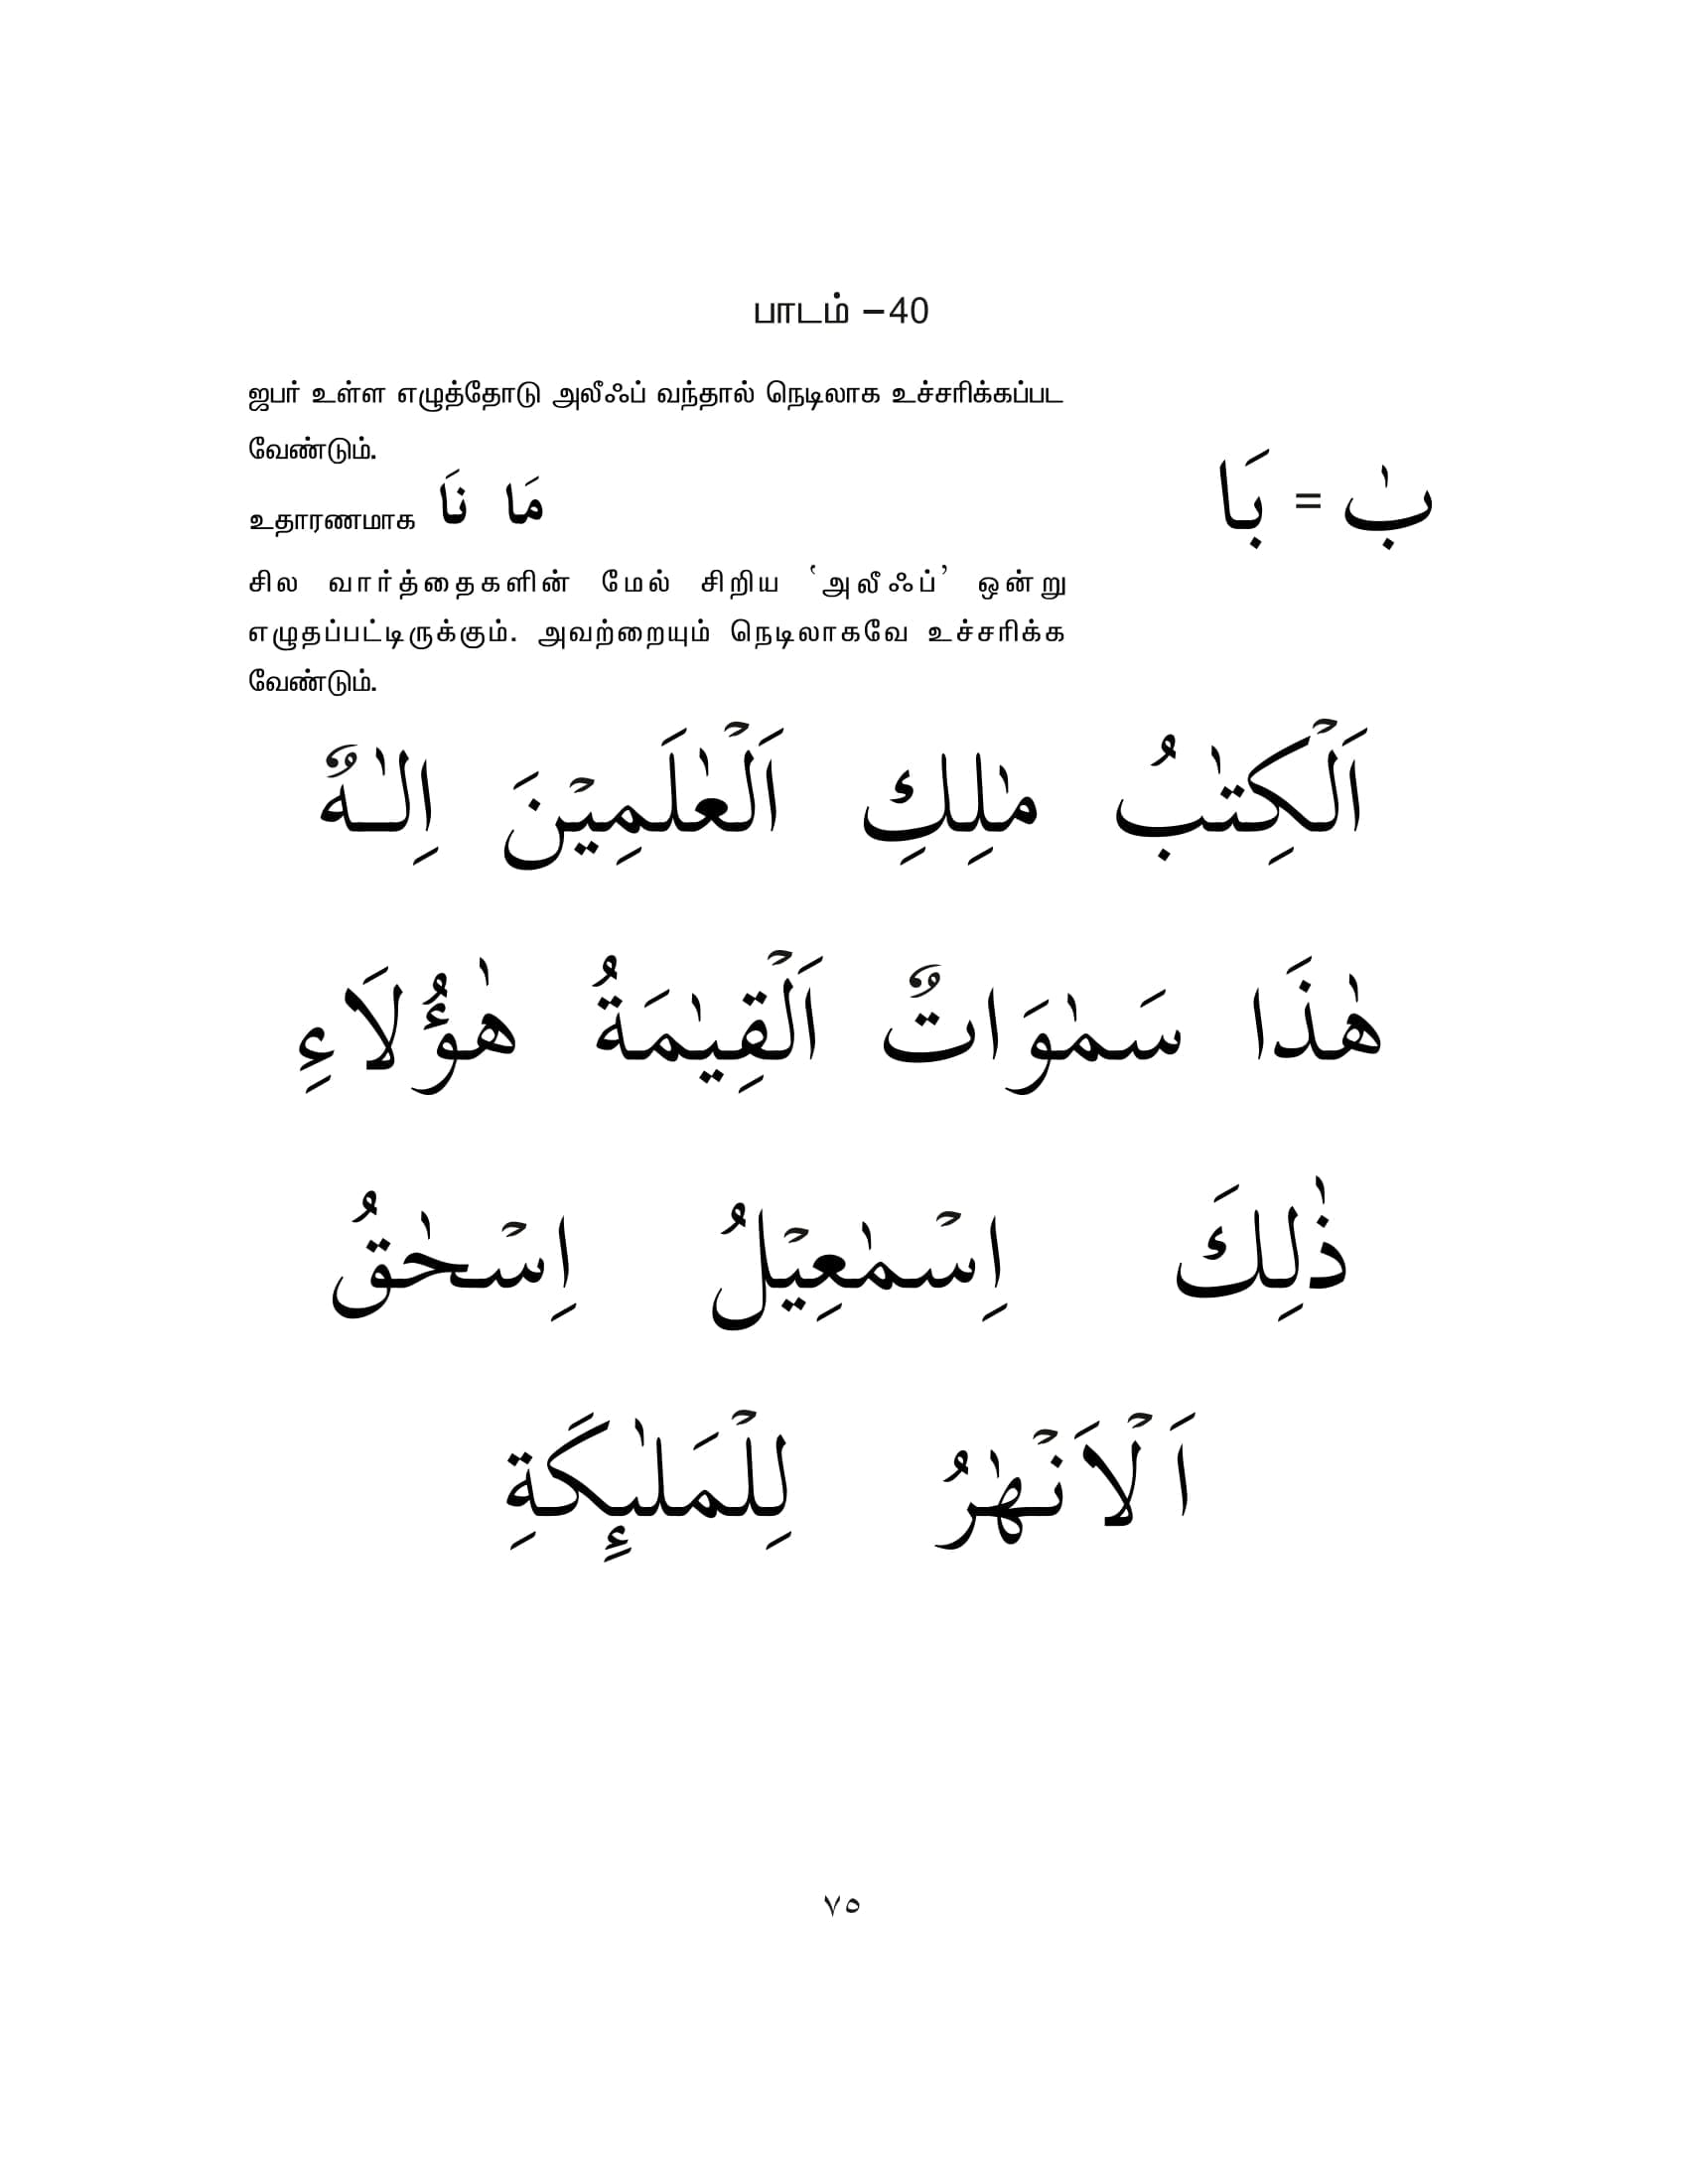 பாடம் –40
ஜபர் உள்ள எழுத்தோடு அலீஃப் வந்தால் நெடிலாக உச்சரிக்கப்பட
வேண்டும்.
بٰ = بَا
உதாரணமாக نَا مَا
சில வார்த்தைகளின் மேல் சிறிய ‘அலீஃப்’ ஒன்று
எழுதப்பட்டிருக்கும். அவற்றையும் நெடிலாகவே உச்சரிக்க
வேண்டும்.
اَلْكِتٰبُ مٰلِكِ اَلْعٰلَمِيْنَ اِلـٰهٌ
هٰذَا سَمٰوَاتٌ اَلْقِيٰمَةُ هٰؤُلَاءِ
ذٰلِكَ اِسْمٰعِيْلُ اِسْحٰقُ
اَلْاَنْهٰرُ لِلْمَلٰئِكَةِ
٧٥